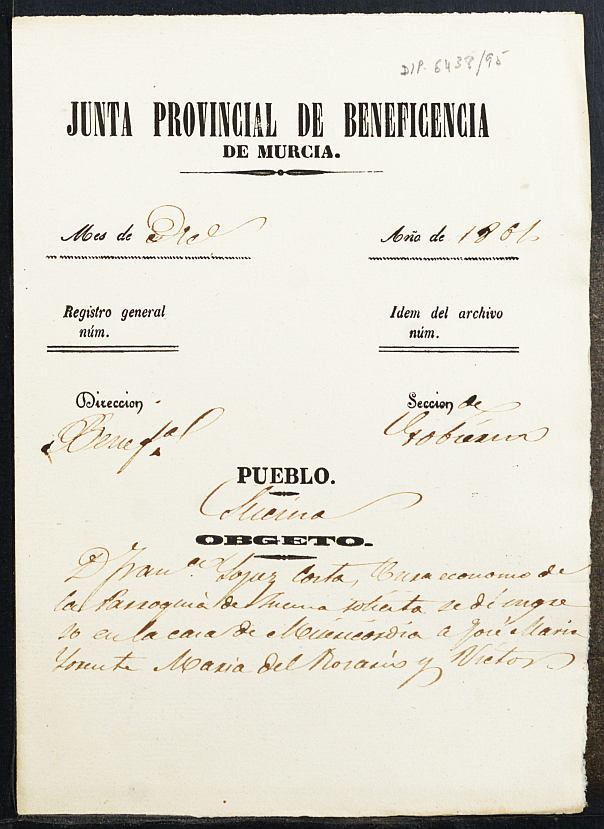 DIP. 6438/95
JUNTA PROVINCIAL DE BENEFICENCIA
DE MURCIA.
Mes de
Año de 1861
Registro general
núm.
Idem del archivo
núm.
Direccion
Seccion de
Gobierno
PUEBLO.
Sucina
OBGETO.
D. Fran.co Lopez Costa, Cura economo de
la Parroquia de Sucina solicita se dé ingre
so en la casa de Misericordia a José Maria
Lorente Maria del Rosario y Victor